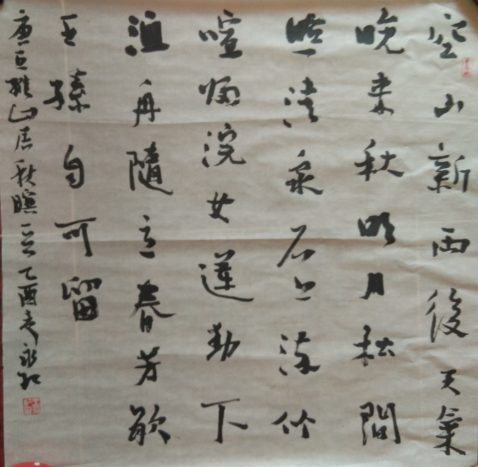 空山新雨後天氣
晚來秋明月松間
照清泉石上流竹
喧歸浣女蓮動下
漁舟隨意春芳歇
王孫自可留
唐王維山居秋暝 乙酉